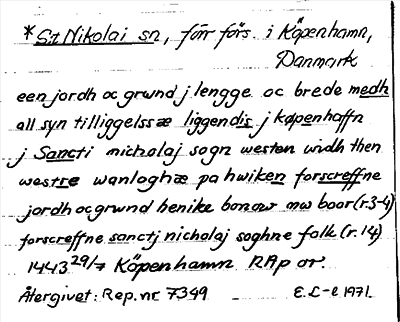 *S:t Nikolai sn, förr förs. i Köpenhamn,
Danmark
een jordh oc grwnd j lengge oc brede medh
all syn tilliggelssæ liggendis j køpenhaffn
j Sancti nicholaj sogn westen widh then
westre wanloghæ pa hwiken forscreffne
jordh oc grwnd henike bonow mw boor (r.3-4)
forscreffne sanctj nicholaj soghne folk (r.14)
1443 29/7 Köpenhamn RAp or.
Återgivet: Rep. nr 7399 E.L-e 1971.